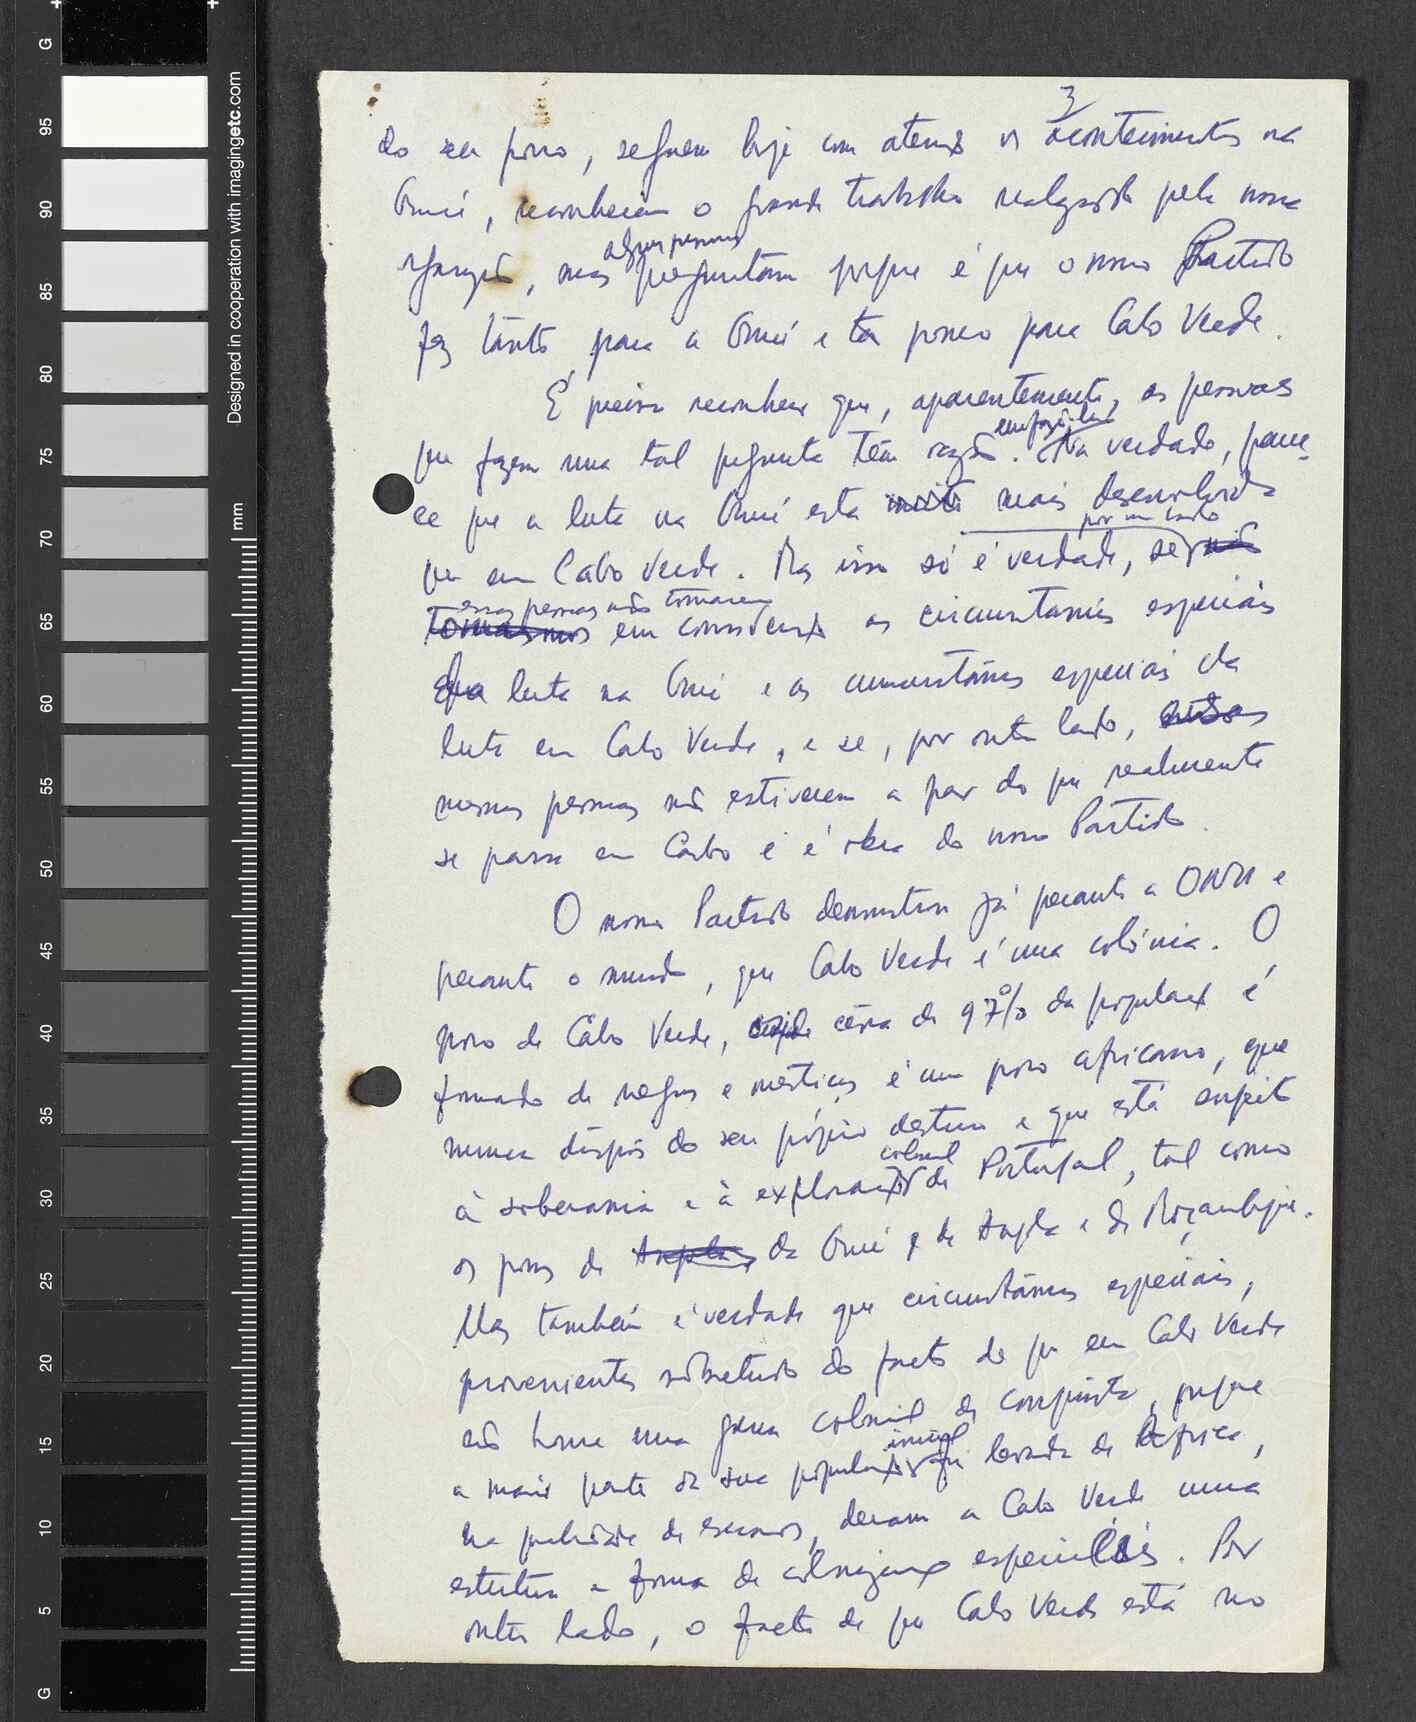 3
do seu povo, seguem hoje com atenção os acontecimentos na
Guiné, reconhecem o grande trabalho realizado pela nossa
organização, mas algumas pessoas perguntam porque é que o nosso Partido
fez tanto para a Guiné e tão pouco para Cabo Verde.
É preciso reconhecer que, aparentemente, as pessoas
que fazem uma tal pergunta têm razão em fazê-la. Na verdade, pare-
ce que a luta na Guiné está mais desenvolvida
que em Cabo Verde. Mas isso só é verdade, se, por um lado,
essas pessoas não tomarem em consideração as circunstancias especiais
da luta na Guiné e as circunstâncias especiais da
luta em Cabo Verde, e se, por outro lado,
mesmas pessoas não estiverem a par do que realmente
se passa em Cabo e é obra do nosso Partido.
O nosso Partido demonstrou já perante a ONU e
perante o mundo, que Cabo Verde é uma colónia. O
povo de Cabo Verde, cêrca de 97% da população é
formado de negros e mestiços é um povo africano, que
nunca dispôs do seu próprio destino e que está sujeito
à soberania e à exploração colonial de Portugal, tal como
os povos de da Guiné, de Angola e de Moçambique.
Mas também é verdade que circunstâncias especiais,
provenientes sobretudo do facto de que em Cabo Verde
não houve uma guerra colonial de conquista, porque
a maior parte da sua população inicial foi levada de África,
na qualidade de escravos, deram a Cabo Verde uma
estrutura e forma de colonização especiais. Por
outro lado, o facto de que Cabo Verde está no